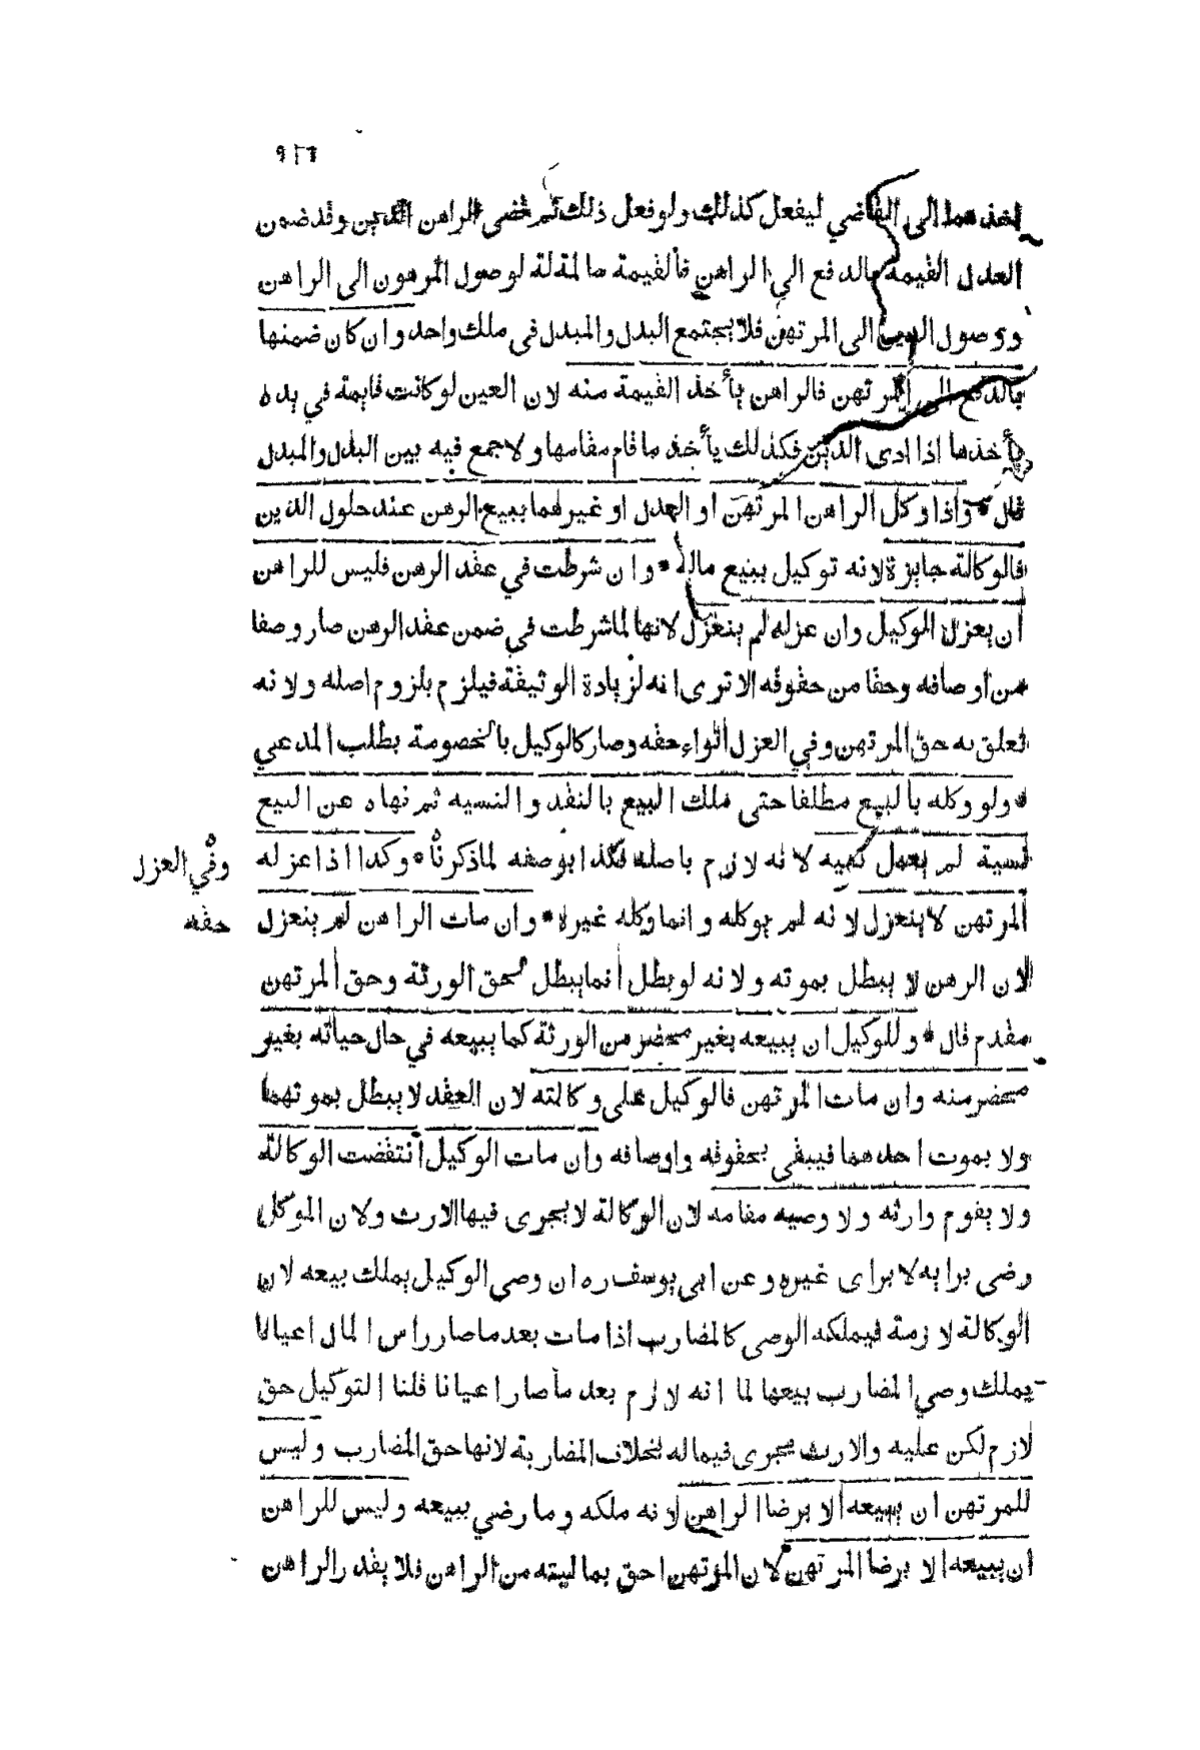 ٩٢٦
اخذهما الى القاضي ليفعل كذلك ولو فعل ذلك ثم قضى الراهن الدين وقد ضمن
العدل القيمة بالدفع الى الراهن فالقيمة سالمة له لوصول المرهون الى الراهن
ووصول الدين الى المرتهن فلا يجتمع البدل والمبدل في ملك واحد وان كان ضمنها
بالدفع الى المرتهن فالراهن يأخذ القيمة منه لان العين لو كانت قايمة في يده
يأخذها اذا ادى الدين فكذلك يأخذ ما قام مقامها ولا جمع فيه بين البدل والمبدل
قال * واذا وكل الراهن المرتهن او العدل او غيرهما ببيع الرهن عند حلول الدين
فالوكالة جايزة لانه توكيل ببيع ماله * وان شرطت في عقد الرهن فليس للراهن
ان يعزل الوكيل وان عزله لم ينعزل لانها لما شرطت في ضمن عقد الرهن صار وصفا
من اوصافه وحقا من حقوقه الا ترى انه لزيادة الوثيقة فيلزم بلزوم اصله ولانه
تعلق به حق المرتهن وفي العزل اتواء حقه وصار كالوكيل بالخصومة بطلب المدعي
* ولو وكله بالبيع مطلقا حتى ملك البيع بالنقد والنسيه ثم نهاه عن البيع
نسية لم يعمل نهيه لانه لازم باصله فكذا بوصفه لما ذكرنا * وكذا اذا عزله
وفي العزل
حقه
المرتهن لا ينعزل لانه لم يوكله وانما وكله غيره * وان مات الراهن لم ينعزل
لان الرهن لا يبطل بموته ولانه لو بطل انما يبطل لحق الورثة وحق المرتهن
مقدم قال * وللوكيل ان يبيعه بغير محضر من الورثة كما يبيعه في حال حياته بغير
محضر منه وان مات المرتهن فالوكيل على وكالته لان العقد لا يبطل بموتهما
ولا بموت احدهما فيبقى بحقوقه واوصافه وان مات الوكيل انتقضت الوكالة
ولا يقوم وارثه ولا وصيه مقامه لان الوكالة لا يجرى فيها الارث ولان الموكل
رضى برايه لا براى غيره وعن ابى يوسف ره ان وصى الوكيل يملك بيعه لان
الوكالة لازمة فيملكه الوصى كالمضارب اذا مات بعد ما صار راس المال اعيانا
يملك وصي المضارب بيعها لما انه لازم بعد ما صار اعيانا قلنا التوكيل حق
لازم لكن عليه والارث يجرى فيما له بخلاف المضاربة لانها حق المضارب وليس
للمرتهن ان يبيعه الا برضا الراهن لانه ملكه وما رضي ببيعه وليس للراهن
ان يبيعه الا برضا المرتهن لان المرتهن احق بماليته من الراهن فلا يقدر الراهن